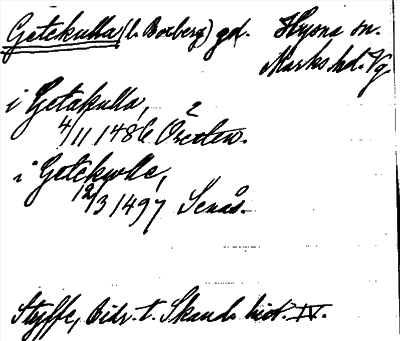 Getekulla (l. Boxberg) gd. Hyssna sn.
Marks hd. Vg
i Getakulla,
4/11 1486 Öresten.
i Getekwlle,
12/3 1497 Senås.
Styffe, Bidr. t. Skand. hist. IV.